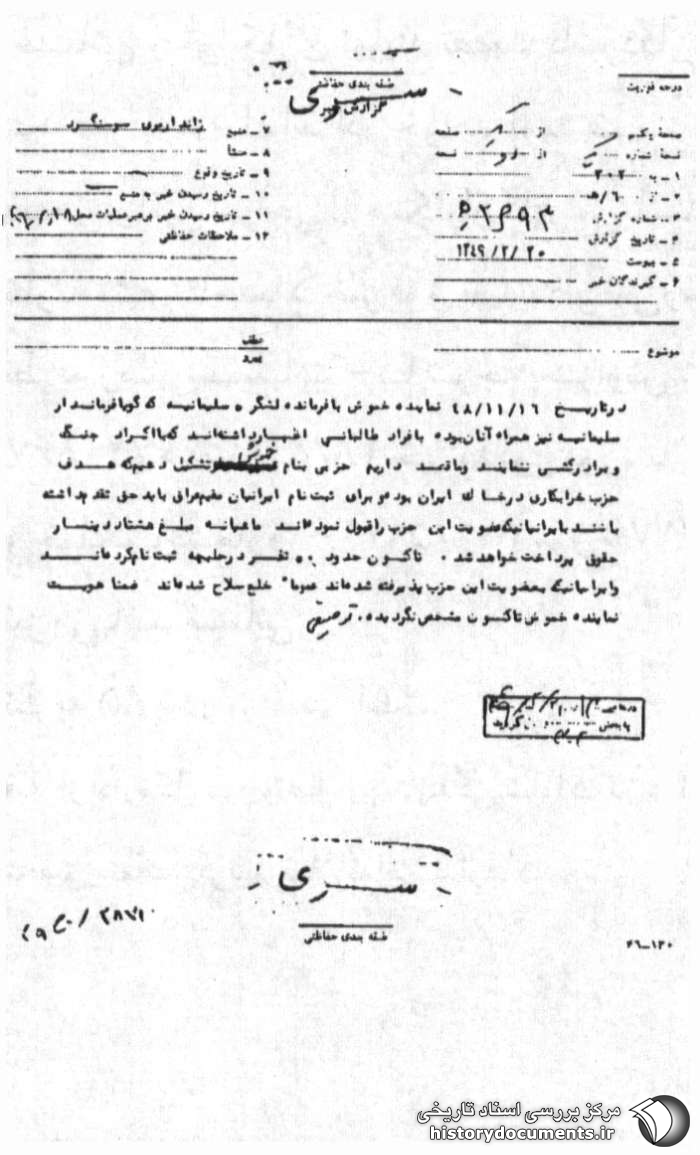 طبقه بندی حفاظتی
سری
گزارش خبر
درجه فوریت
صفحه یک از صفحه
نسخه شماره از نسخه
۱ ـ به ۳۰۲
۲ ـ از ۶/هـ
۳ ـ شماره گزارش
۴ ـ تاریخ گزارش ۱۳۴۹/۲/۲۰
۵ ـ پیوست
۶ ـ گیرندگان خبر
۷ ـ منبع ژاندارمری سوسنگرد
۸ ـ منشا
۹ ـ تاریخ وقوع
۱۰ ـ تاریخ رسیدن خبر به منبع
۱۱ ـ تاریخ رسیدن خبر برهبر عملیات محل
۱۲ ـ ملاحظات حفاظتی
موضوع
عطف
پیرو
در تاریخ ۴۸/۱۱/۱۶ نماینده خموش با فرمانده لشگر و سلیمانیه که گویا فرماندار
سلیمانیه نیز همراه آنان بوده با افراد طالبانی اظهار داشته‌اند که با اکراد جنگ
و برادرکشی ننمایند و ما قصد داریم حزبی بنام تشکیل دهیم که هدف
حزب خرابکاری در خاک ایران بوده و برای ثبت نام ایرانیان مقیم عراق باید حق تقدم داشته
باشند با ایرانیانیکه عضویت این حزب را قبول نموده‌اند ماهیانه مبلغ هشتاد دینار
حقوق پرداخت خواهد شد . تاکنون حدود نفر در حلبچه ثبت نام کرده‌اند
و ایرانیانیکه بعضویت این حزب پذیرفته شده‌اند عموما" خلع سلاح شده‌اند ضمنا هویت
نماینده خموش تاکنون مشخص نگردیده .
سری
طبقه بندی حفاظتی
۲۸۷۱
۲۶-۱۲۰
مرکز بررسی اسناد تاریخی
historydocuments.ir